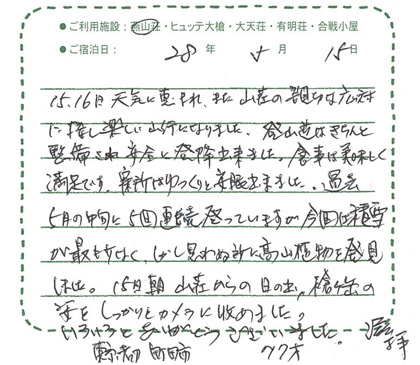 ●ご利用施設：燕山荘・ヒュッテ大槍・大天荘・有明荘・合戦小屋
●ご宿泊日： 28 年 5 月 15 日
15,16日 天気に恵まれ、また 山荘の親切な応対
に接し楽しい山行になりました。登山道はきちんと
整備され安全に登降出来ました。食事は美味しく
満足です。寝所はゆっくりと安眠出来ました。過去
5月の中旬に5回連続登っていますが今回は積雪
が最も少なく、しかし思わぬ所に高山植物を発見
しました。15日朝 山荘からの日の出、槍ヶ岳の
姿をしっかりとカメラに収めました。
いろいろとありがとうございました。
東京都 町田市